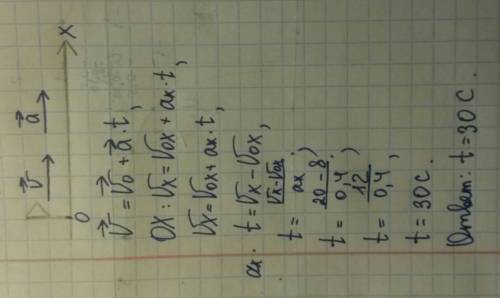 v⃗ a⃗
0 X
v⃗ = v⃗0 + a⃗ · t,
OX: vx = v0x + ax · t,
vx = v0x + ax · t,
ax · t = vx − v0x,
t = (vx − v0x) / ax;
t = (20 − 8) / 0,4;
t = 12 / 0,4,
t = 30 с.
Ответ: t = 30 с.